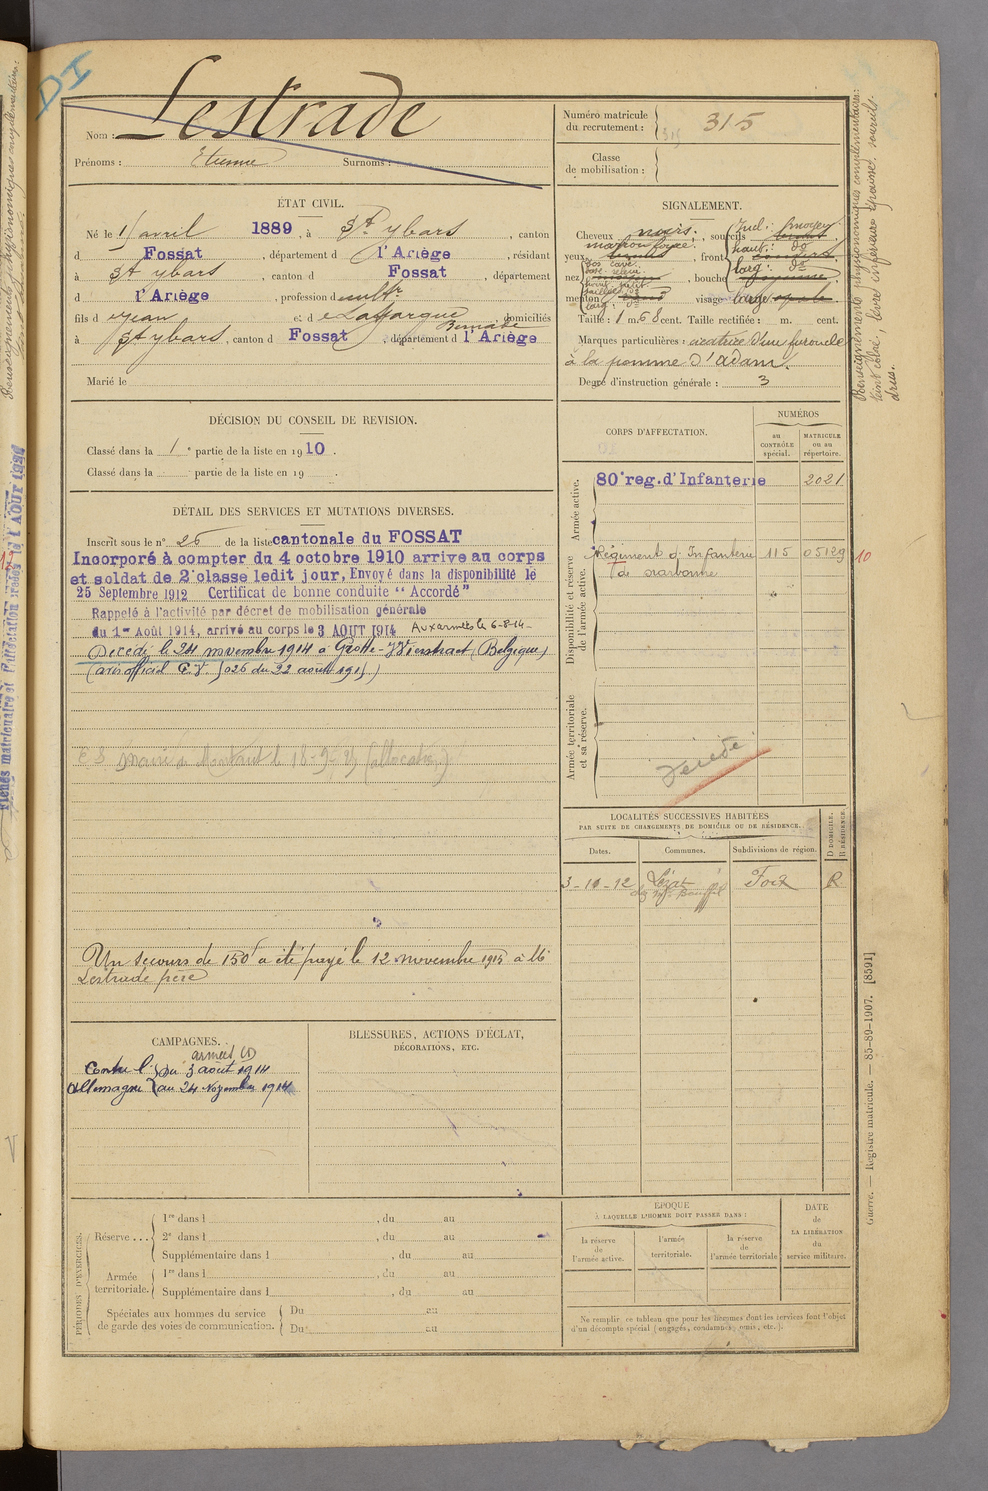 DI
Nom : Lestrade
Prénoms : Etienne Surnoms :
Numéro matricule du recrutement : 315
Classe de mobilisation :
ÉTAT CIVIL.
Né le 1 avril 1889, à St ybars, canton
d Fossat, département d l'Ariège, résidant
à St ybars, canton d Fossat, département
d l'Ariège, profession d cultr
fils d e Jean et d e Lafargue Bernade domiciliés
à St ybars, canton d Fossat, département d l'Ariège
Marié le
SIGNALEMENT.
Cheveux noirs, sourcils
yeux marron foncé, front
nez, bouche
menton, visage large
Taille : 1 m. 68 cent. Taille rectifiée : m. cent.
Marques particulières : cicatrice d'un furoncle
à la pomme d'adam.
Degré d'instruction générale : 3
DÉCISION DU CONSEIL DE REVISION.
Classé dans la 1e partie de la liste en 1910.
Classé dans la partie de la liste en 19 .
DÉTAIL DES SERVICES ET MUTATIONS DIVERSES.
Inscrit sous le n° 26 de la liste cantonale du FOSSAT
Incorporé à compter du 4 octobre 1910 arrive au corps
et soldat de 2e classe ledit jour, Envoyé dans la disponibilité le
25 Septembre 1912 Certificat de bonne conduite "Accordé"
Rappelé à l'activité par décret de mobilisation générale
du 1er Août 1914, arrivé au corps le 3 AOUT 1914 Aux armées le 6-8-14-
Décédé le 24 novembre 1914 à Grotte-Wierstraet (Belgique)
(avis officiel du 22 août 1915.)
Mairie de
Un secours de 150f a été payé le 12 novembre 1915 à Mr
Lestrade père
CORPS D'AFFECTATION.
NUMÉROS
au CONTRÔLE spécial.
MATRICULE ou au répertoire.
Armée active.
80e reg. d'Infanterie 2021
Disponibilité et réserve de l'armée active.
Régiment d'Infanterie 115 05129 10
de Narbonne
Armée territoriale et sa réserve.
Décédé
LOCALITÉS SUCCESSIVES HABITÉES
PAR SUITE DE CHANGEMENTS DE DOMICILE OU DE RÉSIDENCE.
Dates. Communes. Subdivisions de région. D DOMICILE. R RÉSIDENCE.
3-10-12 Lézat Foix R
CAMPAGNES.
armées CD
Contre l' du 3 août 1914
Allemagne au 24 Novembre 1914
BLESSURES, ACTIONS D'ÉCLAT,
DÉCORATIONS, ETC.
PÉRIODES D'EXERCICES.
Réserve ...
1re dans l , du au
2e dans l , du au
Supplémentaire dans l , du au
Armée territoriale.
1re dans l , du au
Supplémentaire dans l , du au
Spéciales aux hommes du service de garde des voies de communication.
Du au
Du au
ÉPOQUE
À LAQUELLE L'HOMME DOIT PASSER DANS :
la réserve de l'armée active.
l'armée territoriale.
la réserve de l'armée territoriale
DATE de LA LIBÉRATION du service militaire.
Ne remplir ce tableau que pour les hommes dont les services font l'objet
d'un décompte spécial (engagés, condamnés, omis, etc.).
Renseignements physionomiques complémentaires:
teint coloré, lèvre inférieure épaisse, sourcils
drus.
Guerre. — Registre matricule. — 85-89-1907. [8591]